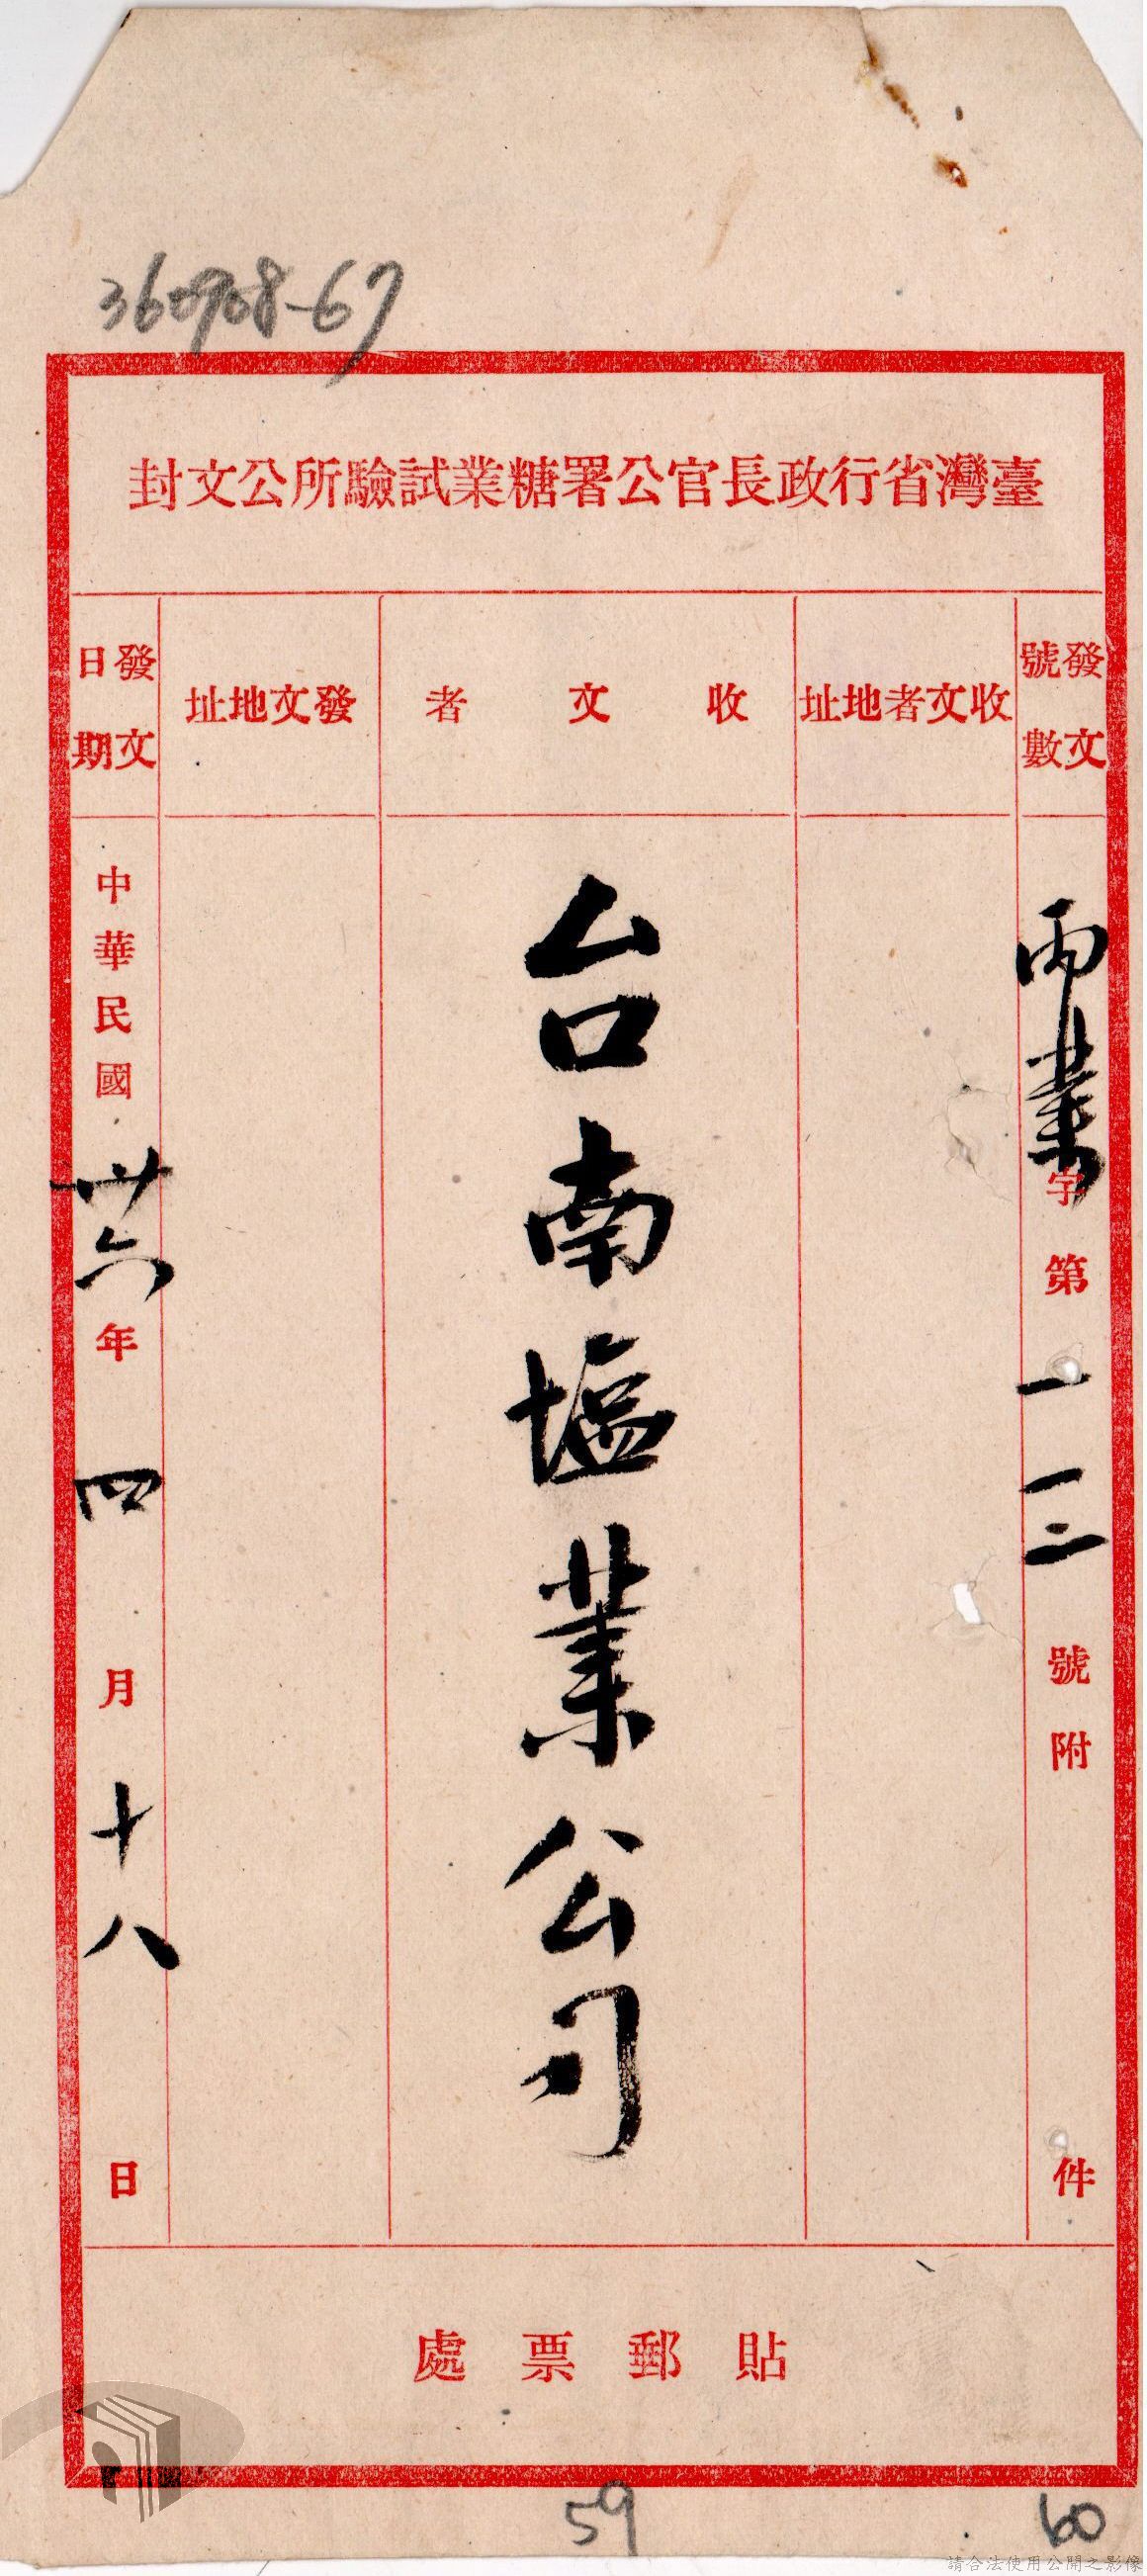 360908-67
臺灣省行政長官公署糖業試驗所公文封
發文號數
丙業字第一一二號附件
收文者地址
收文者
台南塩業公司
發文地址
發文日期
中華民國卅六年四月十八日
貼郵票處
59
60
請合法使用公開之影像